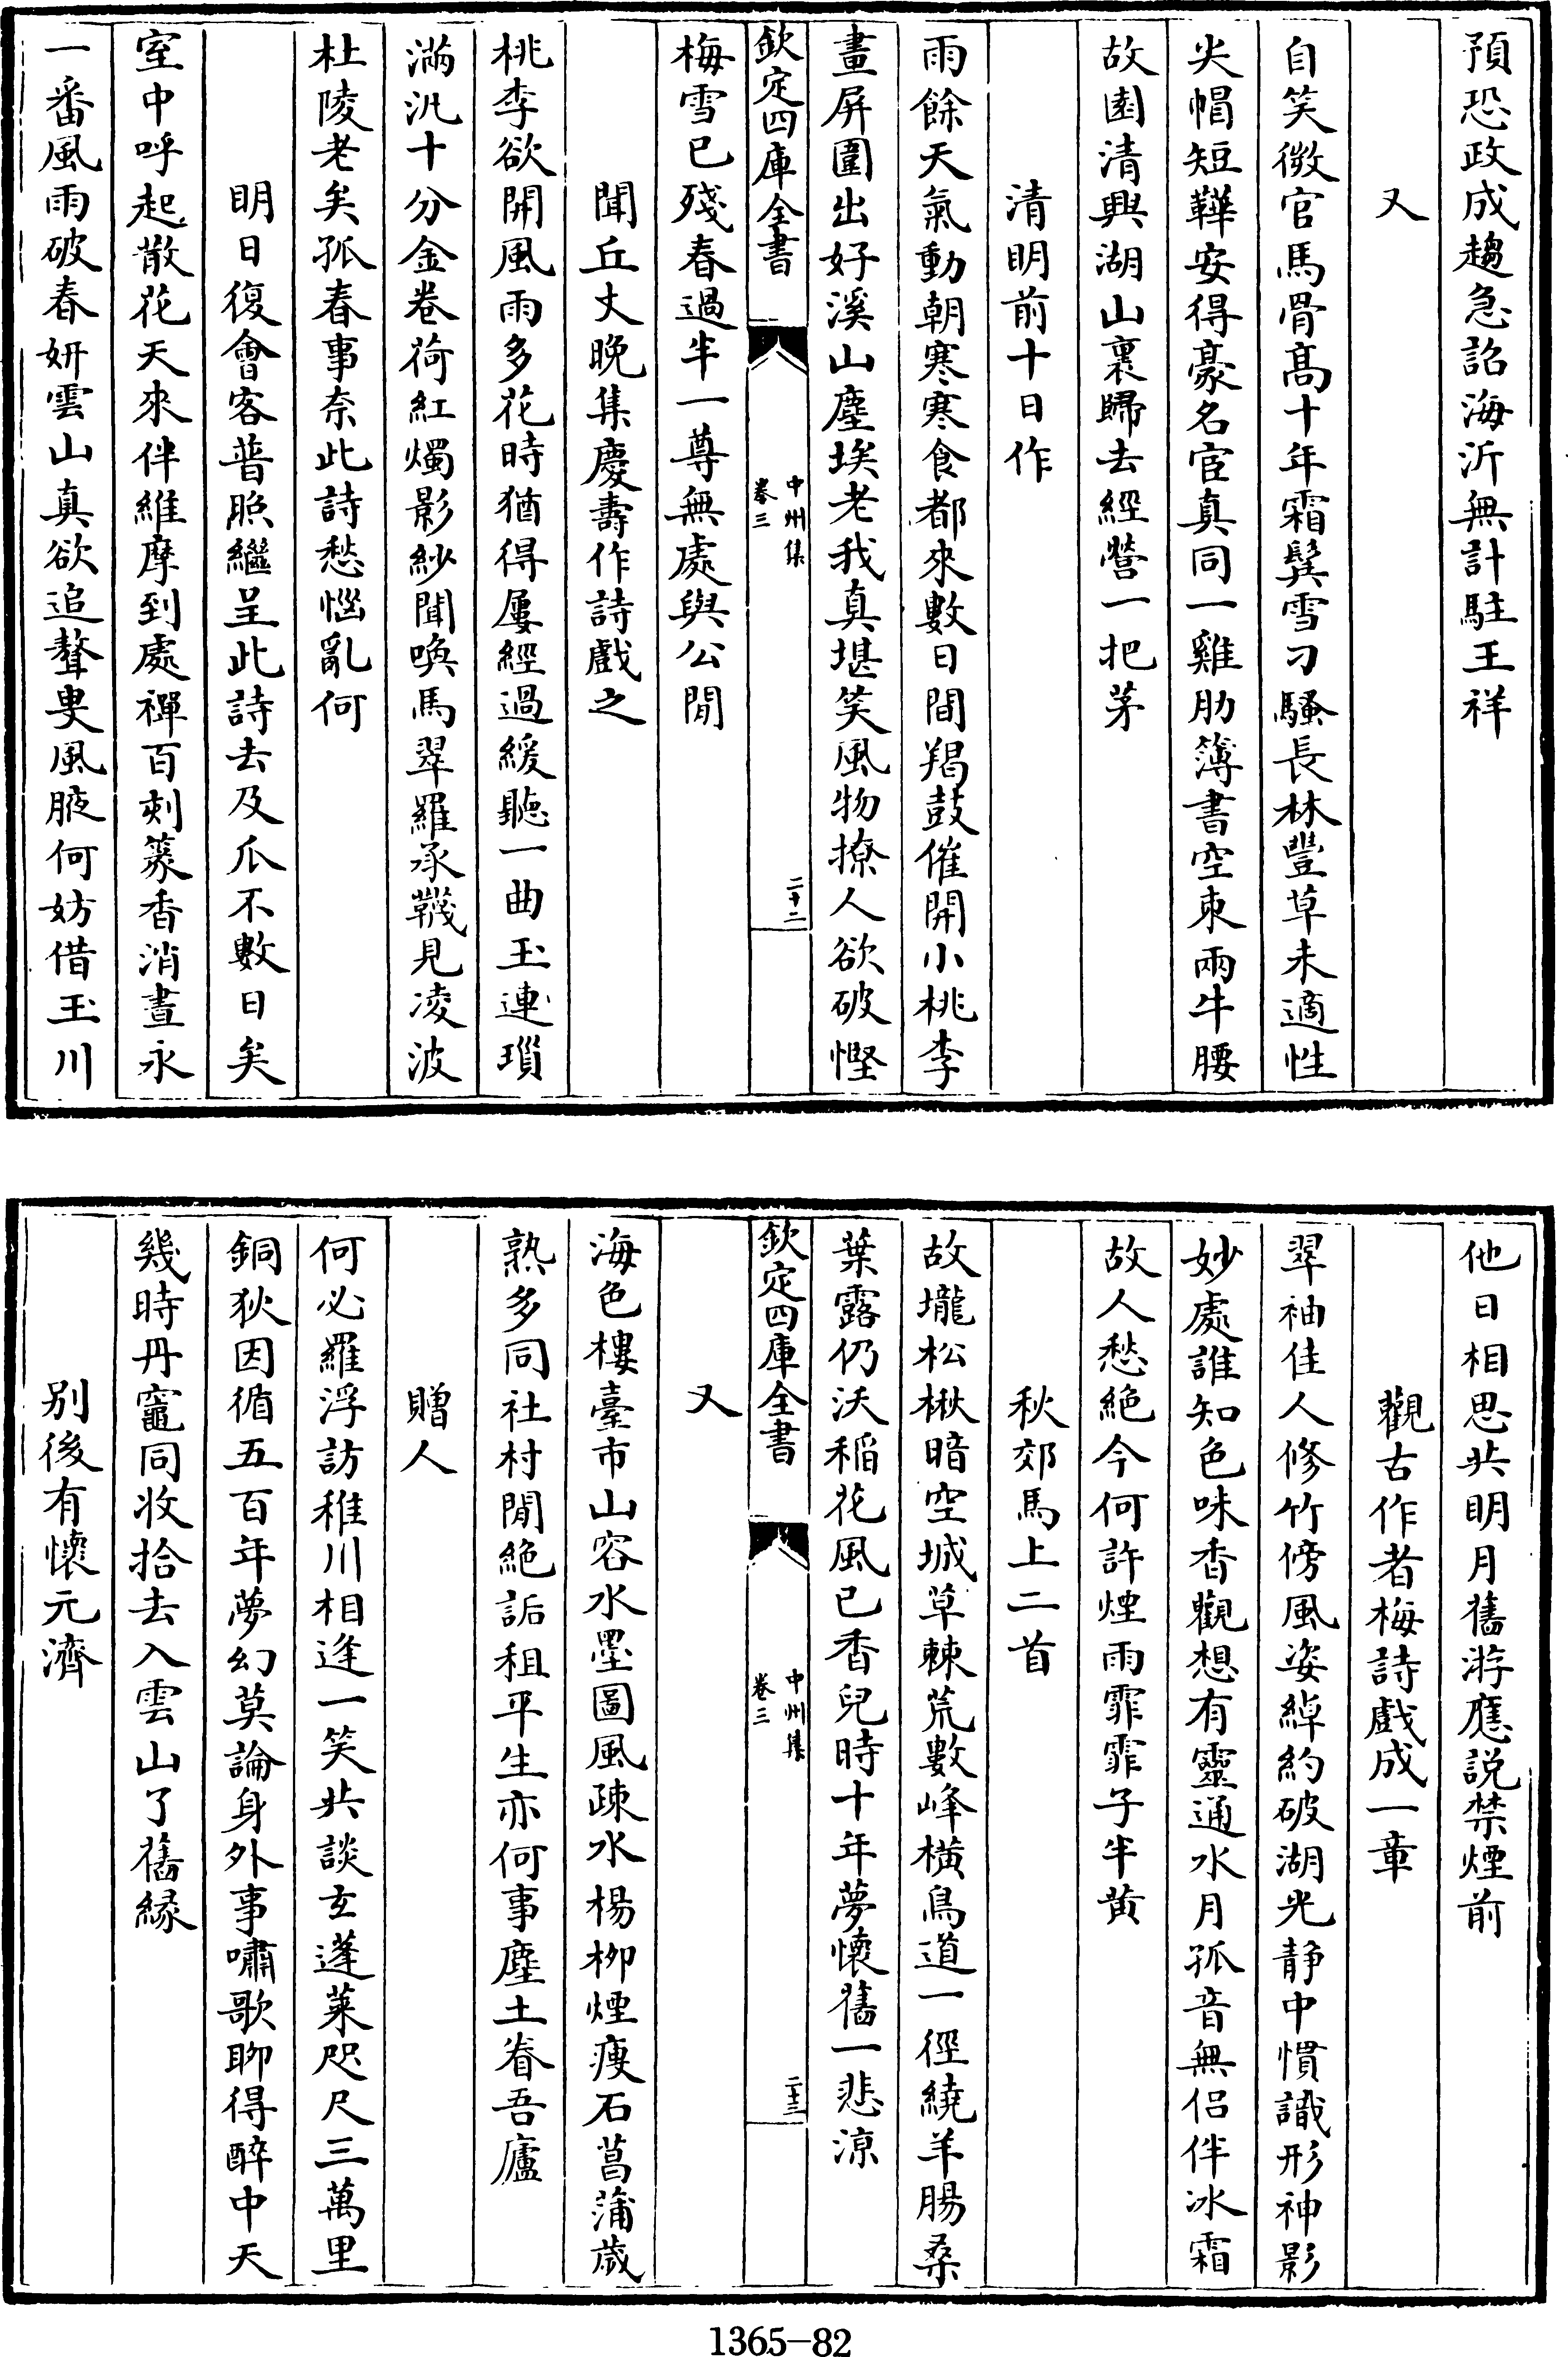 預恐政成趨急詔海沂無計駐王祥
又
自笑微官馬骨髙十年霜鬂雪刁騷長林豐草未適性
尖帽短鞾安得豪名宦真同一雞肋簿書空束兩牛腰
故園清興湖山裏歸去經營一把茅
清明前十日作
雨餘天氣動朝寒寒食都來數日間羯鼓催開小桃李
畫屏圍出好溪山塵埃老我真堪笑風物撩人欲破慳
欽定四庫全書
中州集
卷三
二十二
梅雪已殘春過半一尊無處與公閒
聞丘丈晩集慶壽作詩戲之
桃李欲開風雨多花時猶得屢經過緩聽一曲玉連瑣
滿汎十分金卷荷紅燭影紗聞喚馬翠羅承韈見凌波
杜陵老矣孤春事奈此詩愁惱亂何
明日復會客普照繼呈此詩去及瓜不數日矣
室中呼起散花天來伴維摩到處禪百刺篆香消晝永
一番風雨破春妍雲山真欲追聱叟風腋何妨借玉川
他日相思共明月舊游應説禁煙前
觀古作者梅詩戲成一章
翠袖佳人修竹傍風姿綽約破湖光静中慣識形神影
妙處誰知色味香觀想有靈通水月孤音無侣伴冰霜
故人愁絶今何許煙雨霏霏子半黄
秋郊馬上二首
故壠松楸暗空城草棘荒數峰横鳥道一徑繞羊腸桑
葉露仍沃稻花風已香兒時十年夢懷舊一悲涼
欽定四庫全書
中州集
卷三
二十三
又
海色樓臺市山容水墨圖風疎水楊柳煙瘦石菖蒲歳
熟多同社村閒絶詬租平生亦何事塵土眷吾廬
贈人
何必羅浮訪稚川相逢一笑共談玄蓬萊咫尺三萬里
銅狄因循五百年夢幻莫論身外事嘯歌聊得醉中天
幾時丹竈同收拾去入雲山了舊緣
别後有懷元濟
1365-82